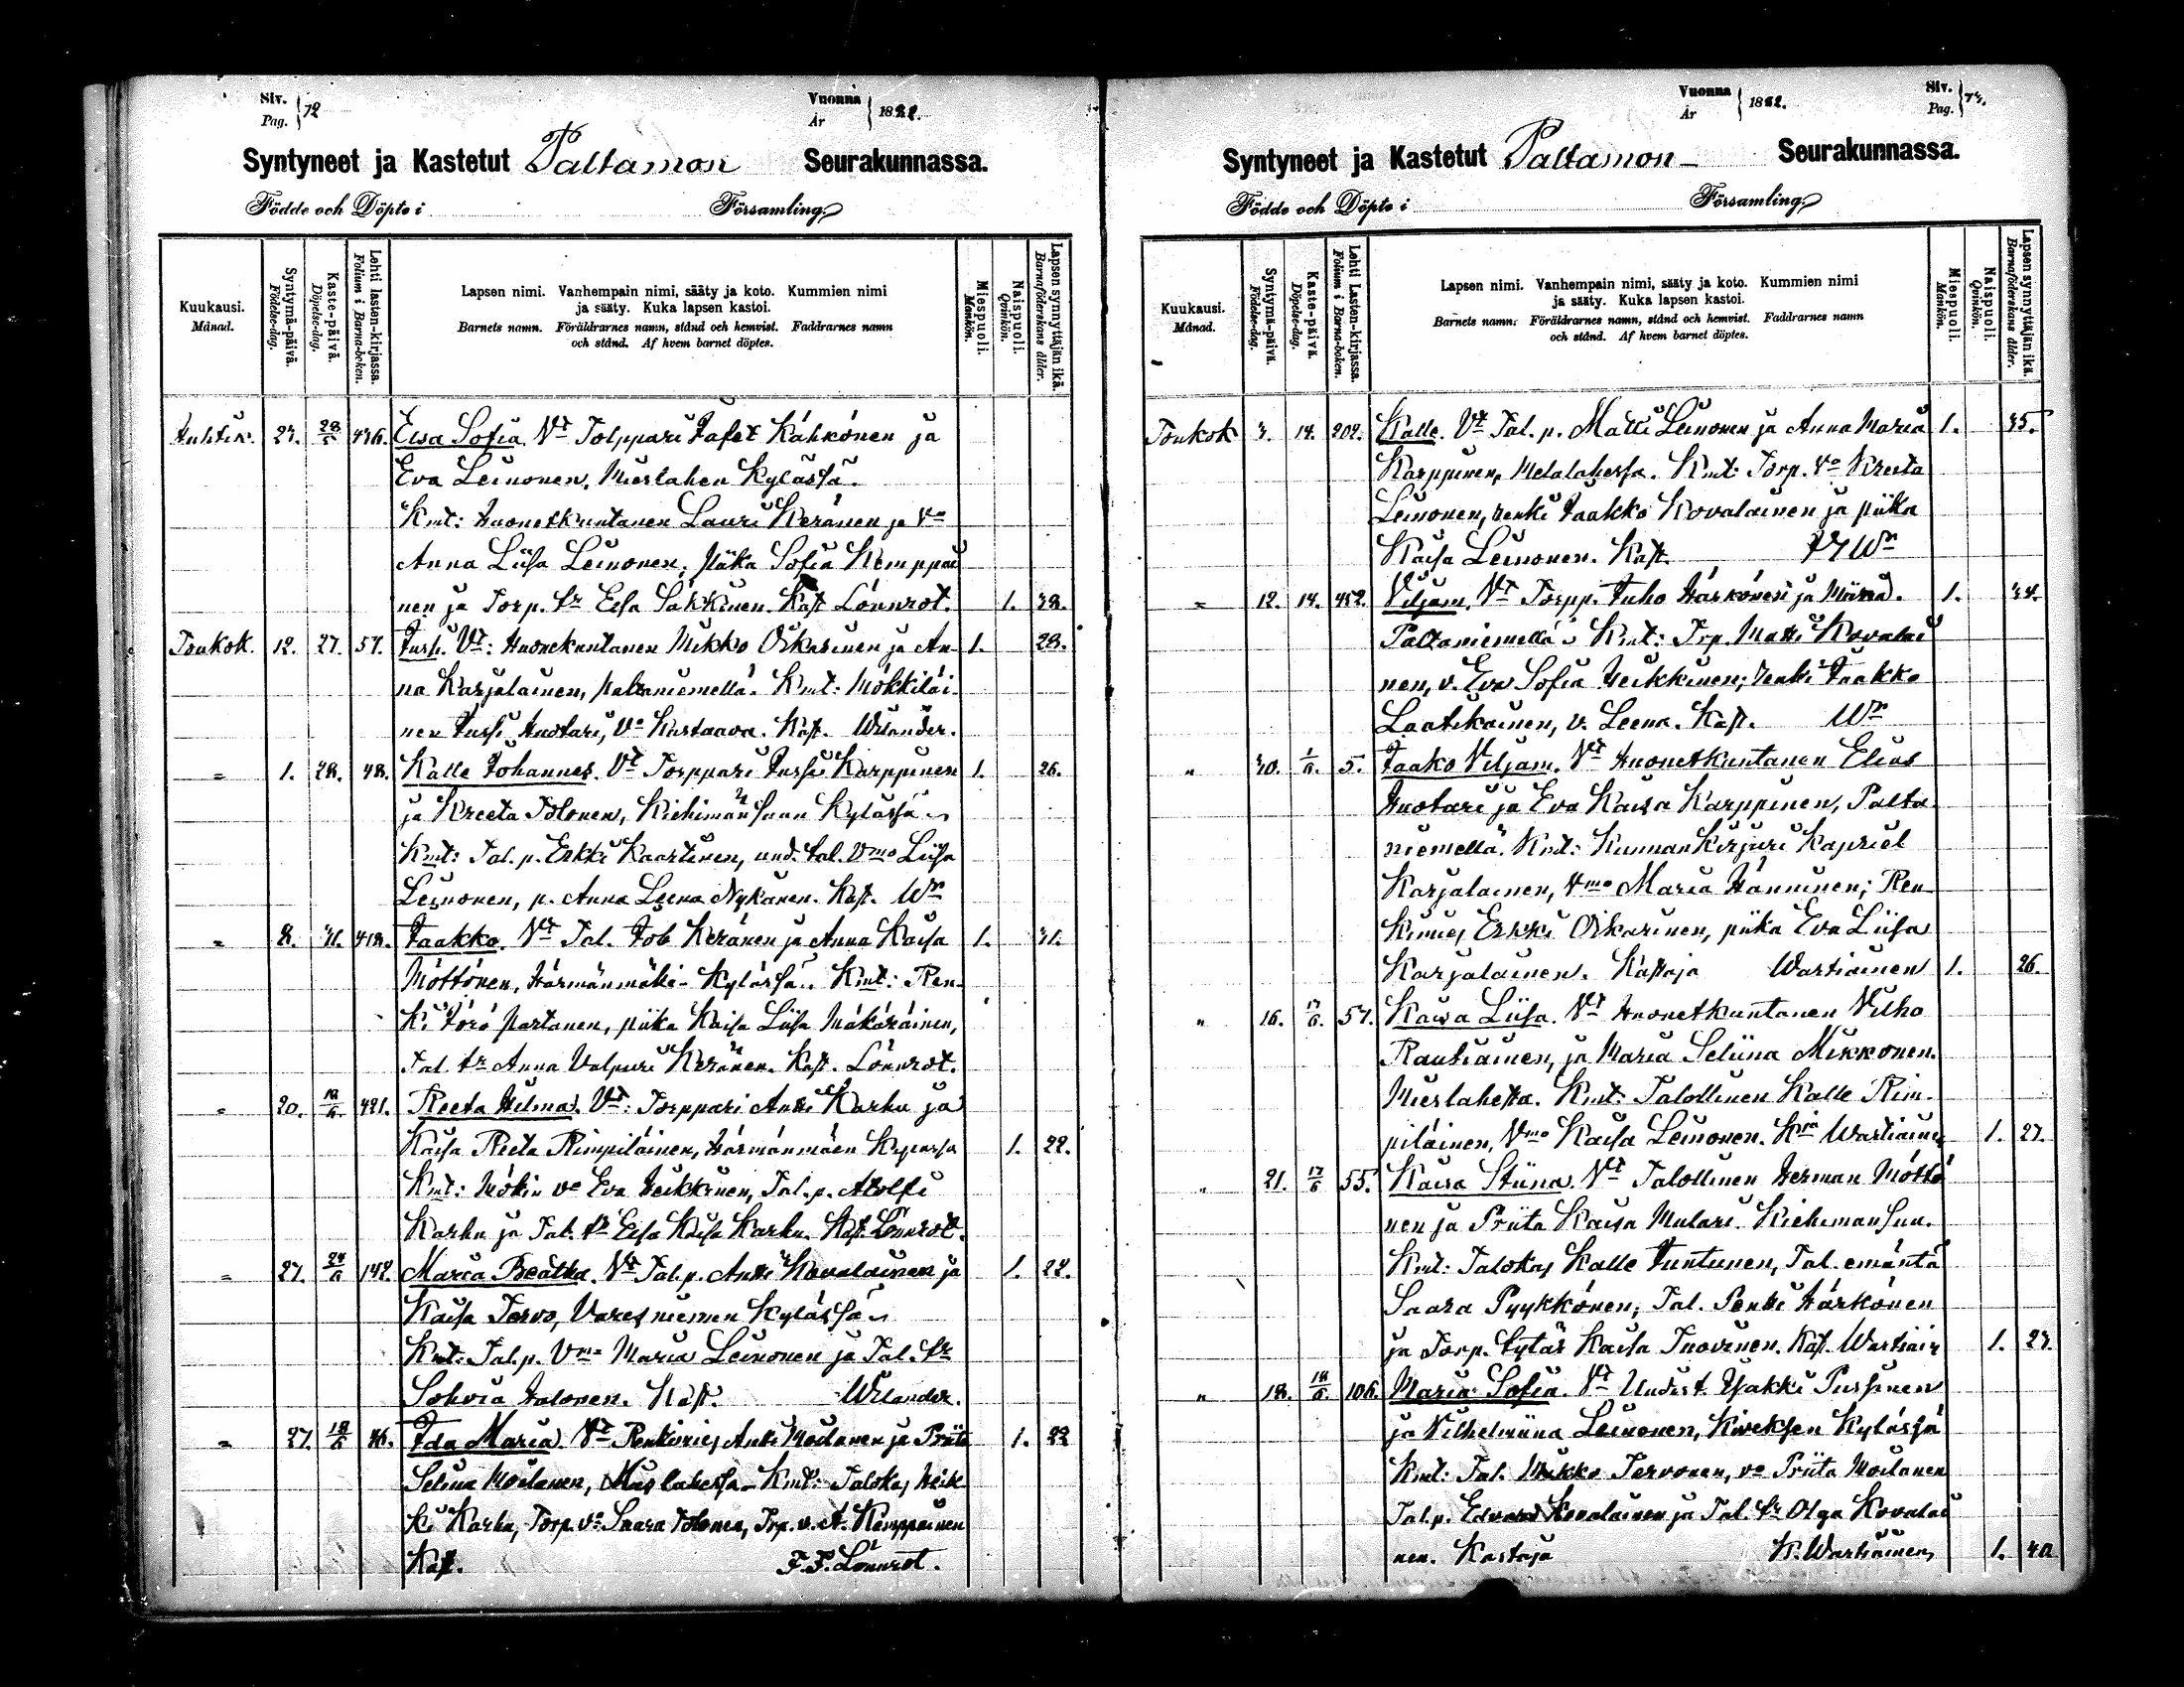 Siv.
Pag. 72
Vuonna
År 1882.
Syntyneet ja Kastetut Paltamon Seurakunnassa.
Födde och Döpte i Församling
Kuukausi.
Månad.
Syntymä-päivä.
Födelse-dag.
Kaste-päivä.
Döpelse-dag.
Lehti lasten-kirjassa.
Folium i Barna-boken.
Lapsen nimi. Vanhempain nimi, sääty ja koto. Kummien nimi
ja sääty. Kuka lapsen kastoi.
Barnets namn. Föräldrarnes namn, stånd och hemvist. Faddrarnes namn
och stånd. Af hvem barnet döptes.
Miespuoli.
Mankön.
Naispuoli.
Qvinkön.
Lapsen synnyttäjän ikä.
Barnaföderskans ålder.
Huhtik. 23. 28/5 436. Elsa Sofia. Vt Tolppari Jafet Kähkönen ja
Eva Leinonen, Mieslahen Kylässä.
Kmt: Huonetkuntanen Lauri Keränen ja vo
Anna Liisa Leinonen, piika Sofia Kemppai
nen ja Torp. tr Elsa Säkkinen. Kast Lönnrot. 1. 38.
Toukok. 12. 27. 57. Jussi. Vt: Huonekuntanen Mikko Oikarinen ja An- 1. 28.
na Karjalainen, Paltaniemellä. Kmt: Mökkiläi-
nen Jussi Huotari, Vo Kustaava. Kast. Wilander.
" 1. 28. 48. Kalle Johannes. Vt Torppari Jussi Karppinen 1. 26.
ja Kreeta Tolonen, Kiehimänsuun Kylässä
Kmt: Tal. p. Erkki Kaartinen, und. tal. Vmo Liisa
Leinonen, p. Anna Leena Nykänen. Kast. Wr
" 8. 31. 418. Jaakko. Vt Tal. Job Keränen ja Anna Kaisa 1. 31.
Möttönen, Härmänmäki-Kylässä. Kmt: Ren-
ki Yörö Partanen, piika Kaisa Liisa Mäkäräinen,
Tal. tr Anna Valpuri Keränen. Kast. Lönnrot.
" 20. 18/6 421. Reeta Hilma. Vt: Torppari Antti Karhu ja
Kaisa Reeta Rimpiläinen, Härmänmäen Kylässä 1. 22.
Kmt: Mökin vo Eva Heikkinen, Tal. p. Atolfi
Karhu ja Tal. tr Elsa Kaisa Karhu. Kast. Lönnrot.
" 27. 24/6 142. Maria Beatha. Vt Tal. p. Antti Kovalainen ja 1. 22.
Kaisa Tervo, Varesniemen Kylässä
Kmt: Tal. p. Vmo Maria Leinonen ja Tal. tr
Sohvia Halonen. Kast. Wilander.
" 27. 18/6 Ida Maria. Vt Renkimies Antti Moilanen ja Priita 1. 22
Selina Moilanen, Mieslahessa. Kmt: Talokas Heik-
ki Karhu, Torp. vo Saara Tolonen, Trp. v. A. Kemppainen
Kast. F. F. Lönnrot.
Vuonna
År 1882.
Siv.
Pag. 73.
Syntyneet ja Kastetut Paltamon Seurakunnassa.
Födde och Döpte i Församling
Kuukausi.
Månad.
Syntymä-päivä.
Födelse-dag.
Kaste-päivä.
Döpelse-dag.
Lehti Lasten-kirjassa.
Folium i Barna-boken.
Lapsen nimi. Vanhempain nimi, sääty ja koto. Kummien nimi
ja sääty. Kuka lapsen kastoi.
Barnets namn. Föräldrarnes namn, stånd och hemvist. Faddrarnes namn
och stånd. Af hvem barnet döptes.
Miespuoli.
Mankön.
Naispuoli.
Qvinkön.
Lapsen synnyttäjän ikä.
Barnaföderskans ålder.
Toukok 3. 14. 202. Kalle. Vt Tal. p. Matti Leinonen ja Anna Maria 1. 35.
Karppinen, Melalahessa. Kmt: Torp. vo Kreeta
Leinonen, renki Jaakko Kovalainen ja piika
Kaisa Leinonen. Kast. Wr
" 12. 14. 452. Viljam. Vt Torpp. Juho Härkönen ja Miina. 1. 34.
Paltaniemellä. Kmt: Trp. Matti Kovalai
nen, v. Eva Sofia Heikkinen; renki Jaakko
Laatikainen, v. Leena. Kast. Wr
" 30. 1/6. 5. Jaako Viljam. Vt Huonetkuntanen Elias
Huotari ja Eva Kaisa Karppinen, Palta-
niemellä. Kmt: Kunnankirjuri Kapriel
Karjalainen, vmo Maria Hänninen; Ren-
kimies Erkki Oikarinen, piika Eva Liisa
Karjalainen. Kastaja Wartiainen 1. 26.
" 16. 17/6. 57. Kaisa Liisa. Vt Huonetkuntanen Vilho
Rautiainen, ja Maria Seliina Mikkonen.
Mieslahelta. Kmt: Talollinen Kalle Rim-
piläinen, Vmo Kaisa Leinonen. Kja Wartiainen 1. 27.
" 21. 17/6 55. Kaisa Stiina. Vt Talollinen Herman Möttö
nen ja Priita Kaisa Mulari. Kiehimänsuu.
Kmt: Talokas Kalle Juntunen, Tal. emäntä
Saara Pyykkönen; Tal. Pentti Härkönen
ja Torp. tytär Kaisa Tuovinen. Kast. Wartiain 1. 23.
" 18. 18/6. 106. Maria Sofia. Vt Undist. Isakki Pursinen
ja Vilhelmiina Leinonen, Kiveksen Kylässä
Kmt: Tal. Mikko Tervonen, vo Priita Moilanen
Tal. p. Edvard Kovalainen ja Tal. tr Olga Kovalai
nen. Kastaja K. Wartiainen 1. 40